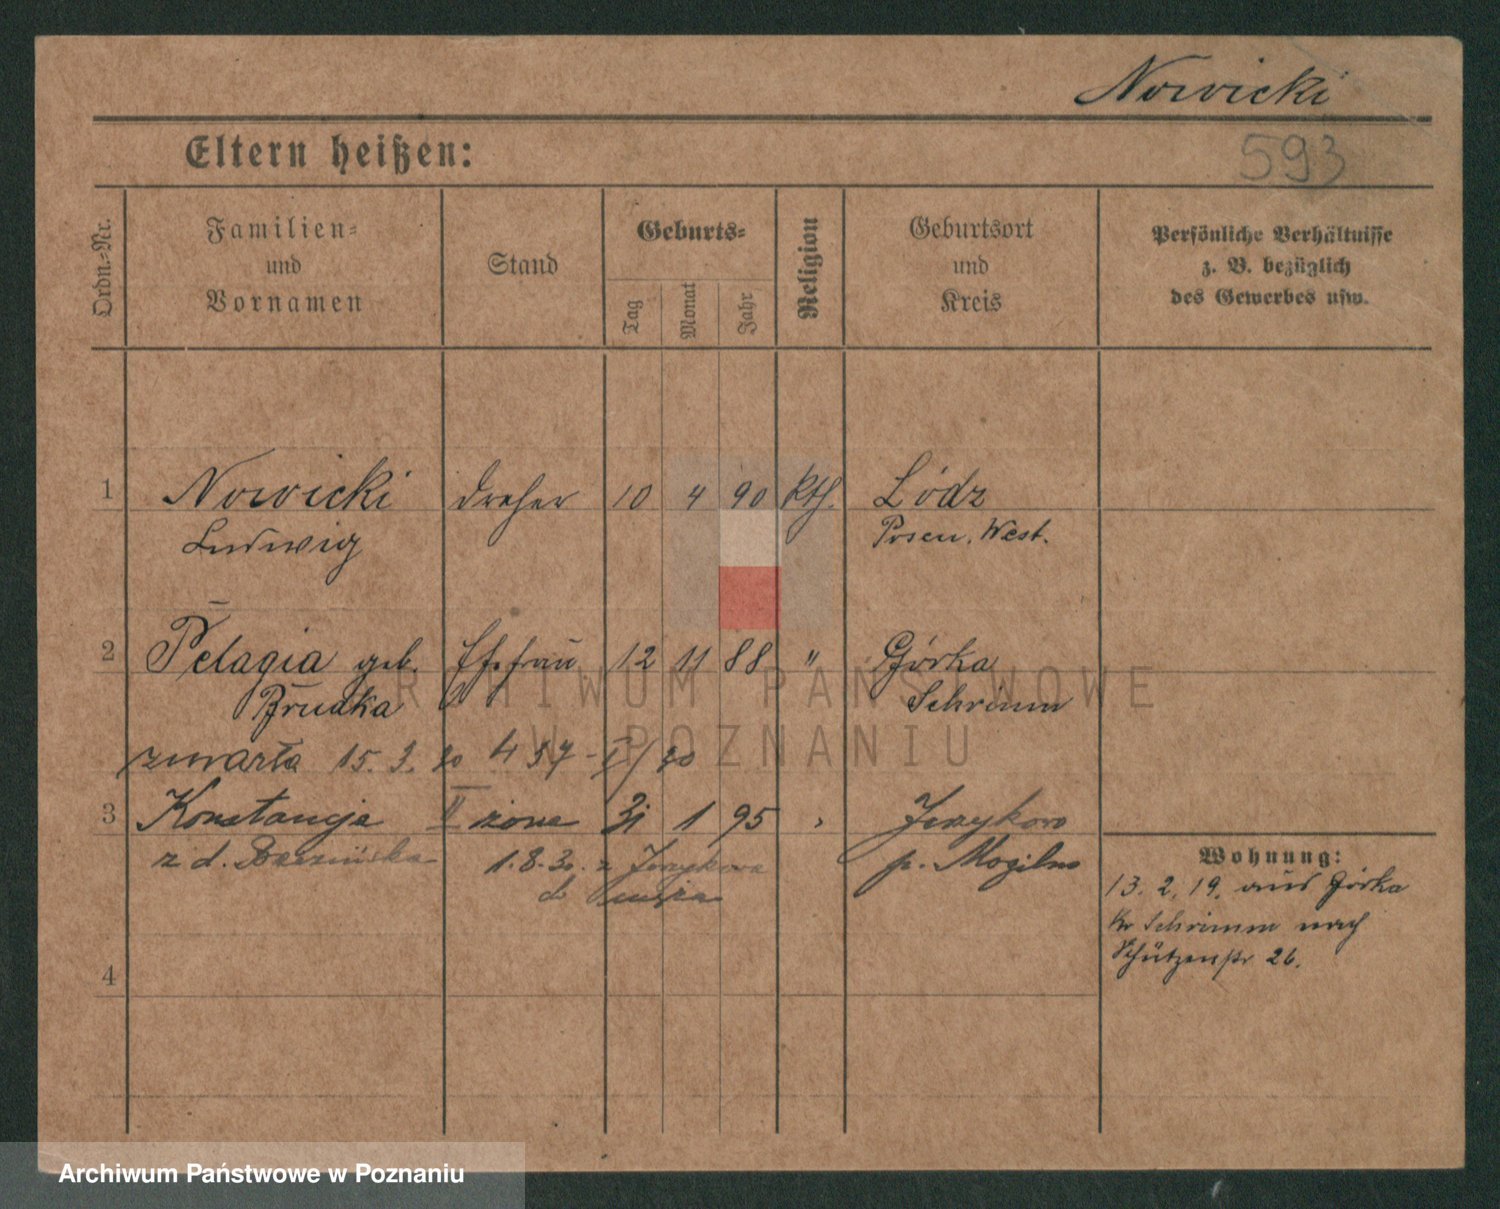 Nowicki
593
Eltern heißen:
Ordn.-Nr.
Familien-
und
Vornamen
Stand
Geburts-
Tag
Monat
Jahr
Religion
Geburtsort
und
Kreis
Persönliche Verhältnisse
z. B. bezüglich
des Gewerbes usw.
1 Nowicki Dreher 10 4 90 Kth. Lódz
Ludwig Posen. West.
2 Pelagia geb. Ehefrau 12 11 88 " Górka
Brudka Schrimm
zmarła 15. 3. 20 457-II/20
3 Konstancja II żona 31 1 95 Jerzykowo
z d. 1.8.30. z Jerzykowa p. Mogilno
do męża
4
Wohnung:
13. 2. 19. aus Górka
Kr Schrimm nach
Schützenstr 26.
ARCHIWUM PAŃSTWOWE
W POZNANIU
Archiwum Państwowe w Poznaniu